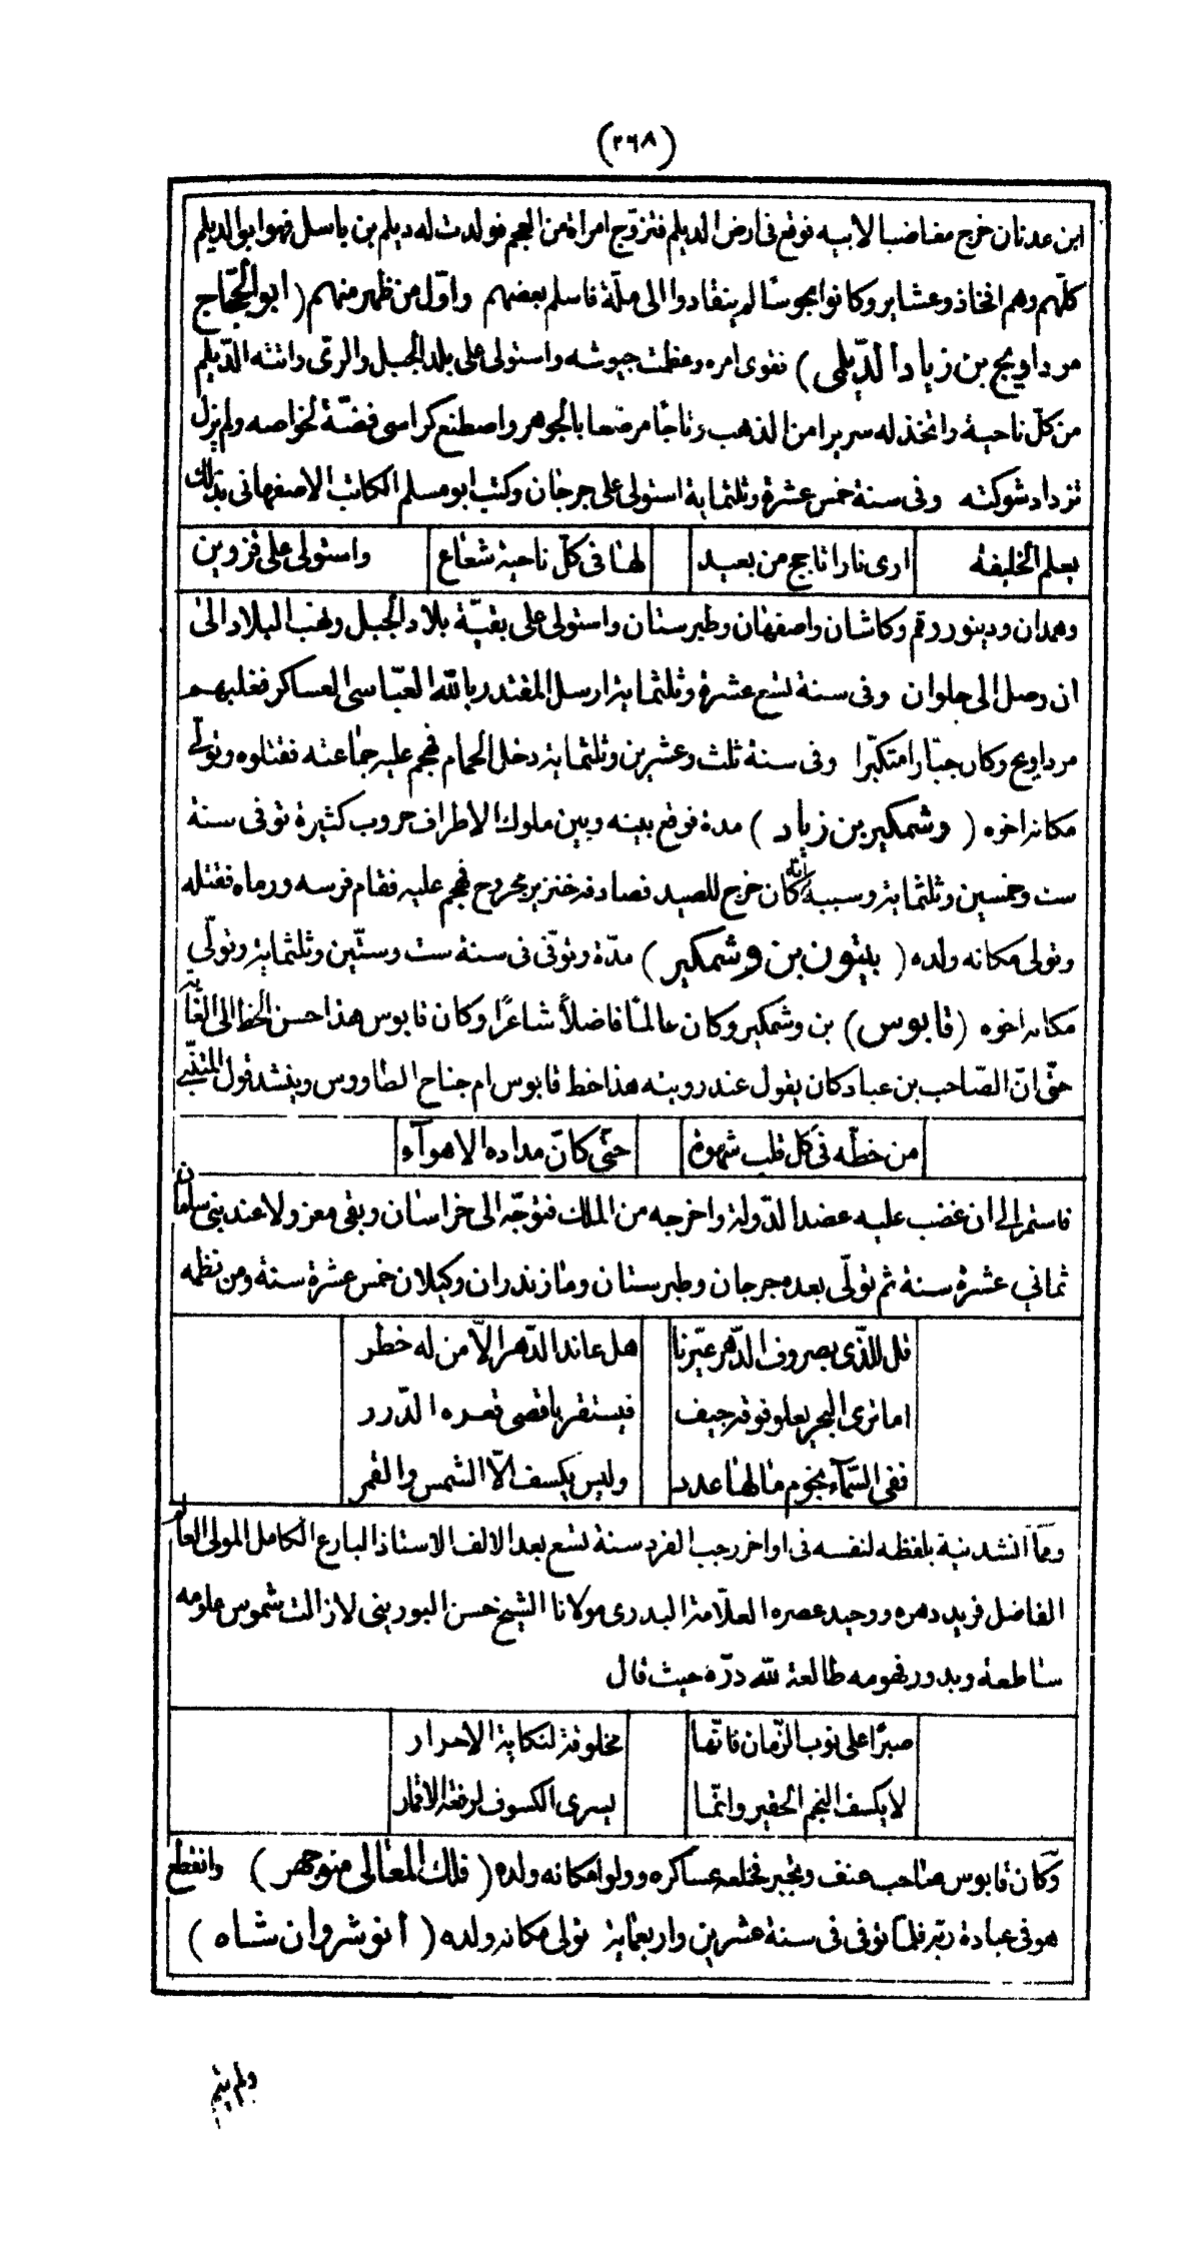 (٢٦٨)
ابن عدنان خرج مغاضبا لابيه فوقع فى ارض الديلم فتزوج امراة من العجم فولدت له ديلم بن باسل فهوابوالديلم
كلّهم وهم افخاذ وعشاير وكانوا مجوسًا لم ينقادوا الى ملّة فاسلم بعضهم واوّل من ظهر منهم (ابوالحجّاج
مرداويج بن زياد الدّيلمى) فقوى امره وعظمت جيوشه واستولى على بلد الجبل والرىّ واتته الدّيلم
من كلّ ناحية واتخذ له سريرا من الذهب وتاجًا مرصعا بالجوهر واصطنع كراسى فضّة لخواصه ولم يزل
تزداد شوكته وفى سنة خمس عشرة وثلثماية استولى على جرجان وكتب ابو مسلم الكاتب الاصفهانى بذلك
يعلم الخليفة ارى نارا تاجج من بعيد لها فى كلّ ناحية شعاع واستولى على قزوين
وهمدان ودينور وقم وكاشان واصفهان وطبرستان واستولى على بقيّة بلاد الجبل ونهب البلاد الى
ان وصل الى حلوان وفى سنة تسع عشرة وثلثماية ارسل المقتدر بالله العبّاسى العساكر فغلبهم
مرداويج وكان جبّارا متكبّرا وفى سنة ثلث وعشرين وثلثماية دخل الحمام فهجم عليه جماعته فقتلوه وتولّى
مكانه اخوه (وشمكير بن زياد) مدة فوقع بينه وبين ملوك الاطراف حروب كثيرة توفى سنة
ست وخمسين وثلثماية وسببه انّه كان خرج للصيد فصادفه خنزير مجروح فهجم عليه فقام فرسه ورماه فقتله
وتولى مكانه ولده (بيتون بن وشمكير) مدّة وتوفّى فى سنة ست وستّين وثلثماية وتولّى
مكانه اخوه (قابوس) بن وشمكير وكان عالمًا فاضلاً شاعرًا وكان قابوس هذا حسن الخط الى الغاية
حتّى انّ الصّاحب بن عباد كان يقول عند رويته هذا خط قابوس ام جناح الطاووس وينشد قول المتنبّي
من خطّه فى كل قلب شهوة حتّى كانّ مداده الاهوآء
فاستمر الى ان غضب عليه عضد الدّولة واخرجه من الملك فتوجّه الى خراسان وبقى معزولا عند بنى سامان
ثمانى عشرة سنة ثم تولّى بعده جرجان وطبرستان ومازندران وكيلان خمس عشرة سنة ومن نظمه
قل للّذى بصروف الدّهر عيّرنا هل عاند الدّهر الاّ من له خطر
اما ترى البحر يعلو فوقه جيف فيستقر باقصى قعره الدّرر
ففى السّمآء نجوم مالها عدد وليس يكسف الاّ الشمس والقمر
وممّا انشدنيه بلفظه لنفسه فى اواخر رجب الفرد سنة تسع بعد الالف الاستاذ البارع الكامل المولى العالم
الفاضل فريد دهره ووحيد عصره العلّامة البدرى مولانا الشيخ حسن البورينى لازالت شموس علومه
ساطعة وبدور فهومه طالعة لله درّه حيث قال
صبرًا على نوب الزّمان فانّها مخلوقة لنكاية الاحرار
لا يكسف النجم الحقير وانّما يسرى الكسوف لرفعة الاقمار
وكان قابوس صاحب عنف وتجبر فخلعه عساكره وولوا مكانه ولده (فلك المعالى منوچهر) وانقطع
هو فى عبادة ربّه فلمّا توفى فى سنة عشرين واربعماية تولى مكانه ولده (انوشروان شاه)
ولم يتم